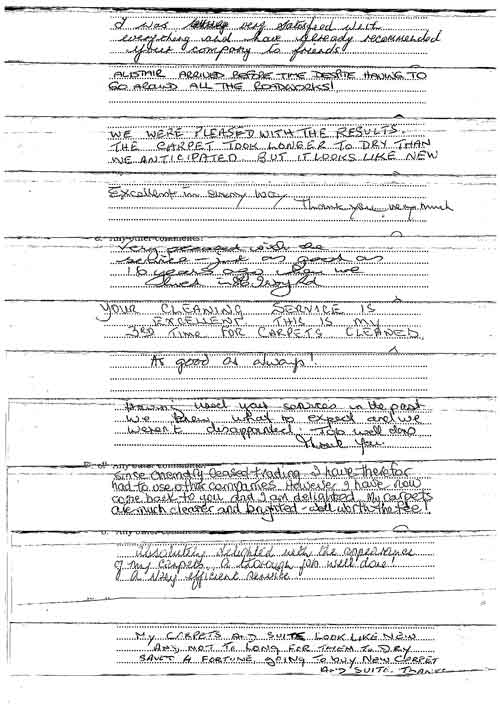 I was very satisfied with
everything and have already recommended
your company to friends
ALISTAIR ARRIVED BEFORE TIME DESPITE HAVING TO
GO AROUND ALL THE ROADWORKS!
WE WERE PLEASED WITH THE RESULTS.
THE CARPET TOOK LONGER TO DRY THAN
WE ANTICIPATED BUT IT LOOKS LIKE NEW
Excellent in every way
Thank you very much
Any other comments:
Very pleased with the
service - just as good as
16 years ago when we
YOUR CLEANING SERVICE IS
EXCELLENT THIS IS MY
3RD TIME FOR CARPETS CLEANED
As good as always!
Having used your services in the past
we knew what to expect and we
weren't disappointed. Top well done
Thank You.
Sinse Chemdry ceased trading I have therefor
had to use other companies. However I have now
come back to you and I am delighted. My carpets
are much cleaner and brighter - well worth the fee!
Absolutely delighted with the appearance
of my carpets. A thorough job well done!
A very efficient service
MY CARPETS AND SUITE LOOK LIKE NEW
AND NOT TO LONG FOR THEM TO DRY
SAVET A FORTUNE going TO BUY NEW CARPET
AND SUITE. THANKS